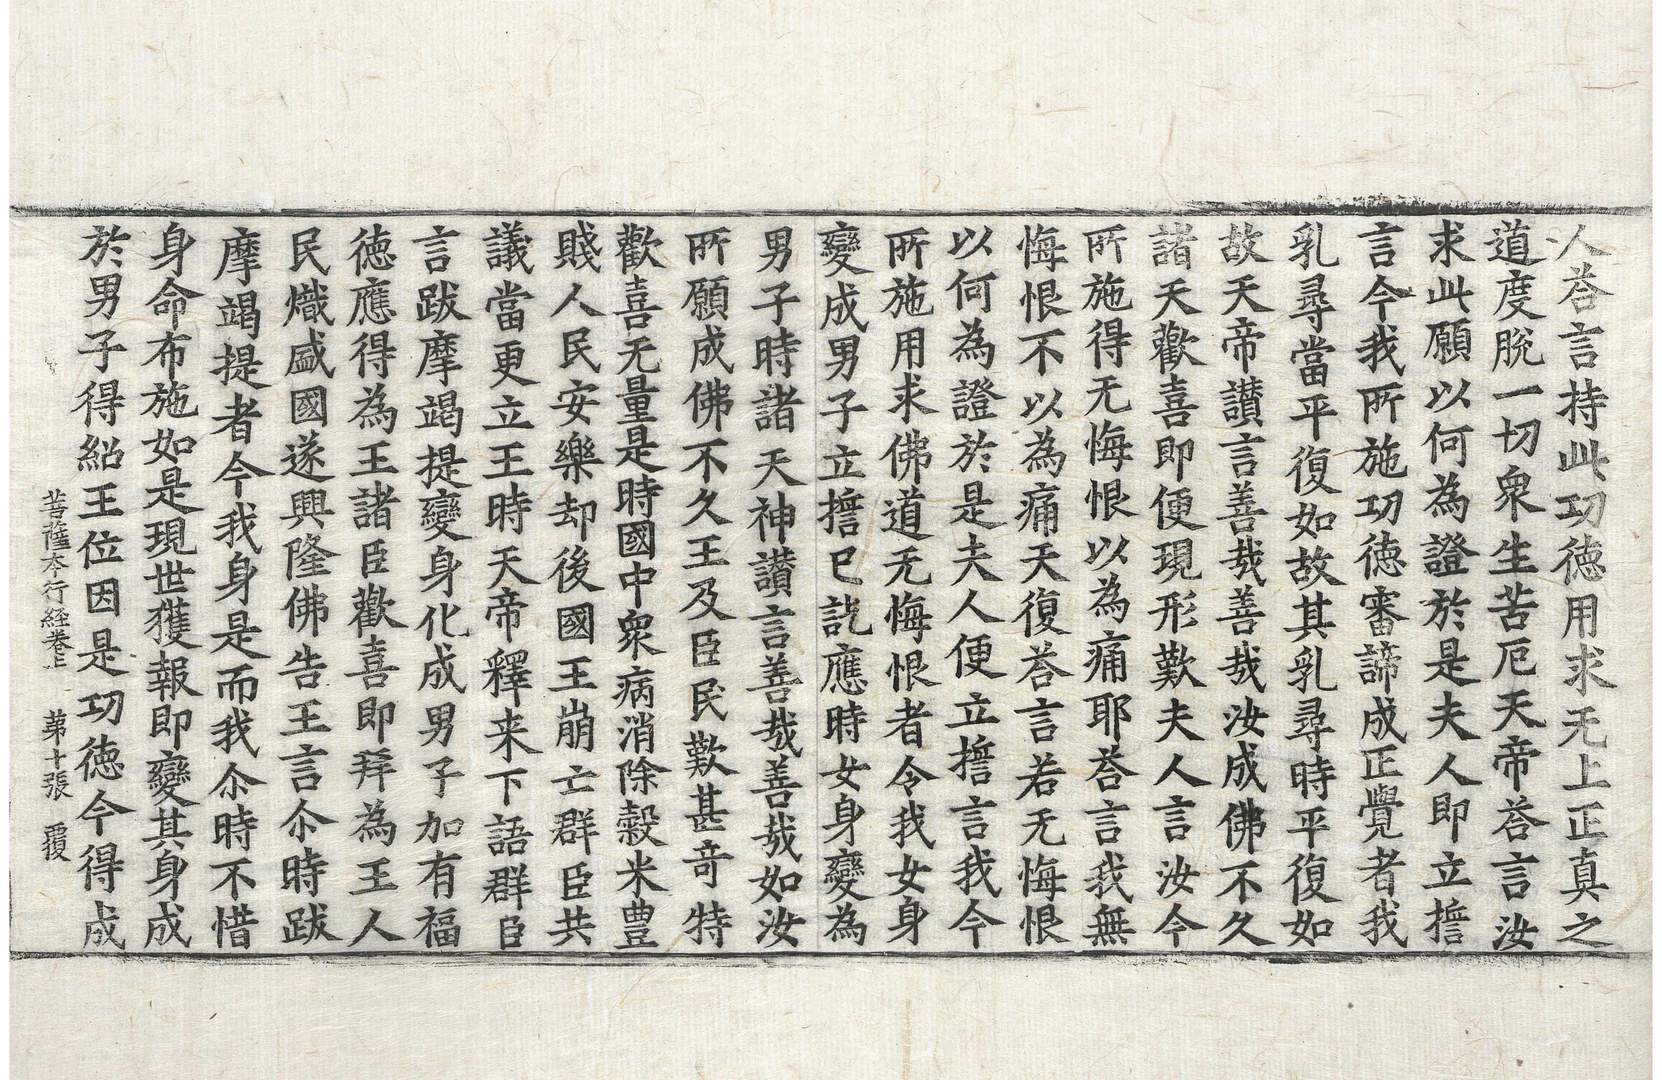 人荅言持此功德用求无上正真之
道度脫一切衆生苦厄天帝荅言汝
求此願以何為證於是夫人即立誓
言今我所施功德審諦成正覺者我
乳尋當平復如故其乳尋時平復如
故天帝讃言善哉善哉汝成佛不久
諸天歡喜即便現形歎夫人言汝今
所施得无悔恨以為痛耶荅言我無
悔恨不以為痛天復荅言若无悔恨
以何為證於是夫人便立誓言我今
所施用求佛道无悔恨者令我女身
變成男子立誓已訖應時女身變為
男子時諸天神讃言善哉善哉如汝
所願成佛不久王及臣民歎甚竒特
歡喜无量是時國中衆病消除穀米豊
賤人民安樂却後國王崩亡群臣共
議當更立王時天帝釋来下語群臣
言跋摩竭提變身化成男子加有福
德應得為王諸臣歡喜即拜為王人
民熾盛國遂興隆佛告王言尒時跋
摩竭提者今我身是而我尒時不惜
身命布施如是現世獲報即變其身成
於男子得紹王位因是功德今得成
菩薩本行経卷上 苐十張 覆